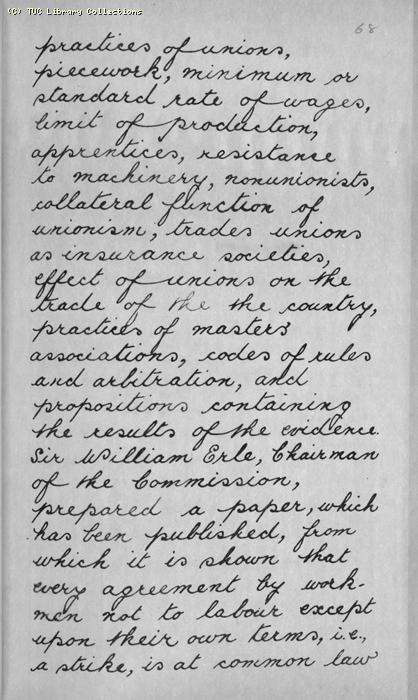 (C) TUC Library Collections
68
practices of unions,
piecework, minimum or
standard rate of wages,
limit of production,
apprentices, resistance
to machinery, nonunionists,
collateral function of
unionism, trades unions
as insurance societies,
effect of unions on the
trade of the the country,
practices of masters'
associations, codes of rules
and arbitration, and
propositions containing
the results of the evidence.
Sir William Erle, Chairman
of the Commission,
prepared a paper, which
has been published, from
which it is shown that
every agreement by work-
men not to labour except
upon their own terms, i.e.,
a strike, is at common law